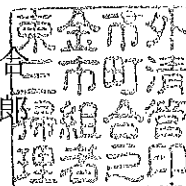 東金市外
三市町清
掃組合管
理者之印
郎